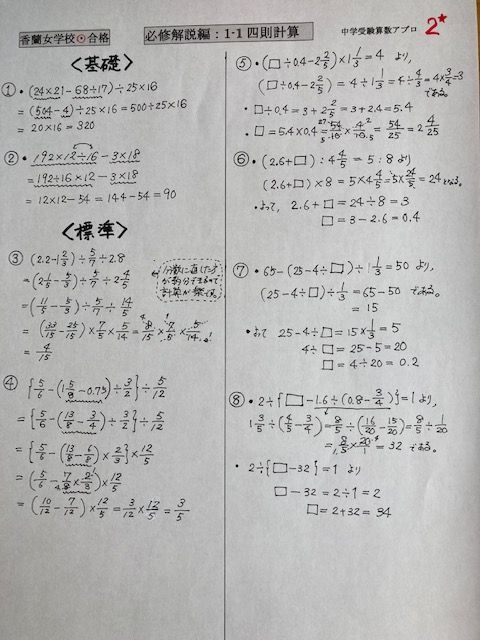 香蘭女学校⊙合格
必修解説編：1-1 四則計算
中学受験算数アプロ
2*
<基礎>
① • (24×21-68÷17)÷25×16
= (504-4)÷25×16=500÷25×16
= 20×16=320
② • 192×12÷16-3×18
= 192÷16×12-3×18
= 12×12-54=144-54=90
<標準>
③ • (2.2-1 2/3)÷5/7÷2.8
= (2 1/5-5/3)÷5/7÷2 4/5
= (11/5-5/3)÷5/7÷14/5
= (33/15-25/15)×7/5×5/14=8/15×7/5×5/14
= 4/15
分数に直した方
が約分できるので
計算が楽です。
④ • {5/6-(1 5/8-0.75)÷3/2}÷5/12
= {5/6-(13/8-3/4)÷3/2}÷5/12
= {5/6-(13/8-6/8)×2/3}×12/5
= (5/6-7/8×2/3)×12/5
= (10/12-7/12)×12/5=3/12×12/5=3/5
⑤ • (□÷0.4-2 2/5)×1 1/3=4 より、
(□÷0.4-2 2/5)=4÷1 1/3=4÷4/3=4×3/4=3
である。
• □÷0.4=3+2 2/5=3+2.4=5.4
• □=5.4×0.4=54/10×4/10=54/25=2 4/25
⑥ • (2.6+□):4 4/5=5:8 より
(2.6+□)×8=5×4 4/5=5×24/5=24である。
• よって、2.6+□=24÷8=3
□=3-2.6=0.4
⑦ • 65-(25-4÷□)÷1/3=50 より、
(25-4÷□)÷1/3=65-50である。
=15
• よって 25-4÷□=15×1/3=5
4÷□=25-5=20
□=4÷20=0.2
⑧ • 2÷{□-1.6÷(0.8-3/4)}=1 より、
1 3/5÷(4/5-3/4)=8/5÷(16/20-15/20)=8/5÷1/20
=8/5×20/1=32 である。
• 2÷{□-32}=1 より
□-32=2÷1=2
□=2+32=34